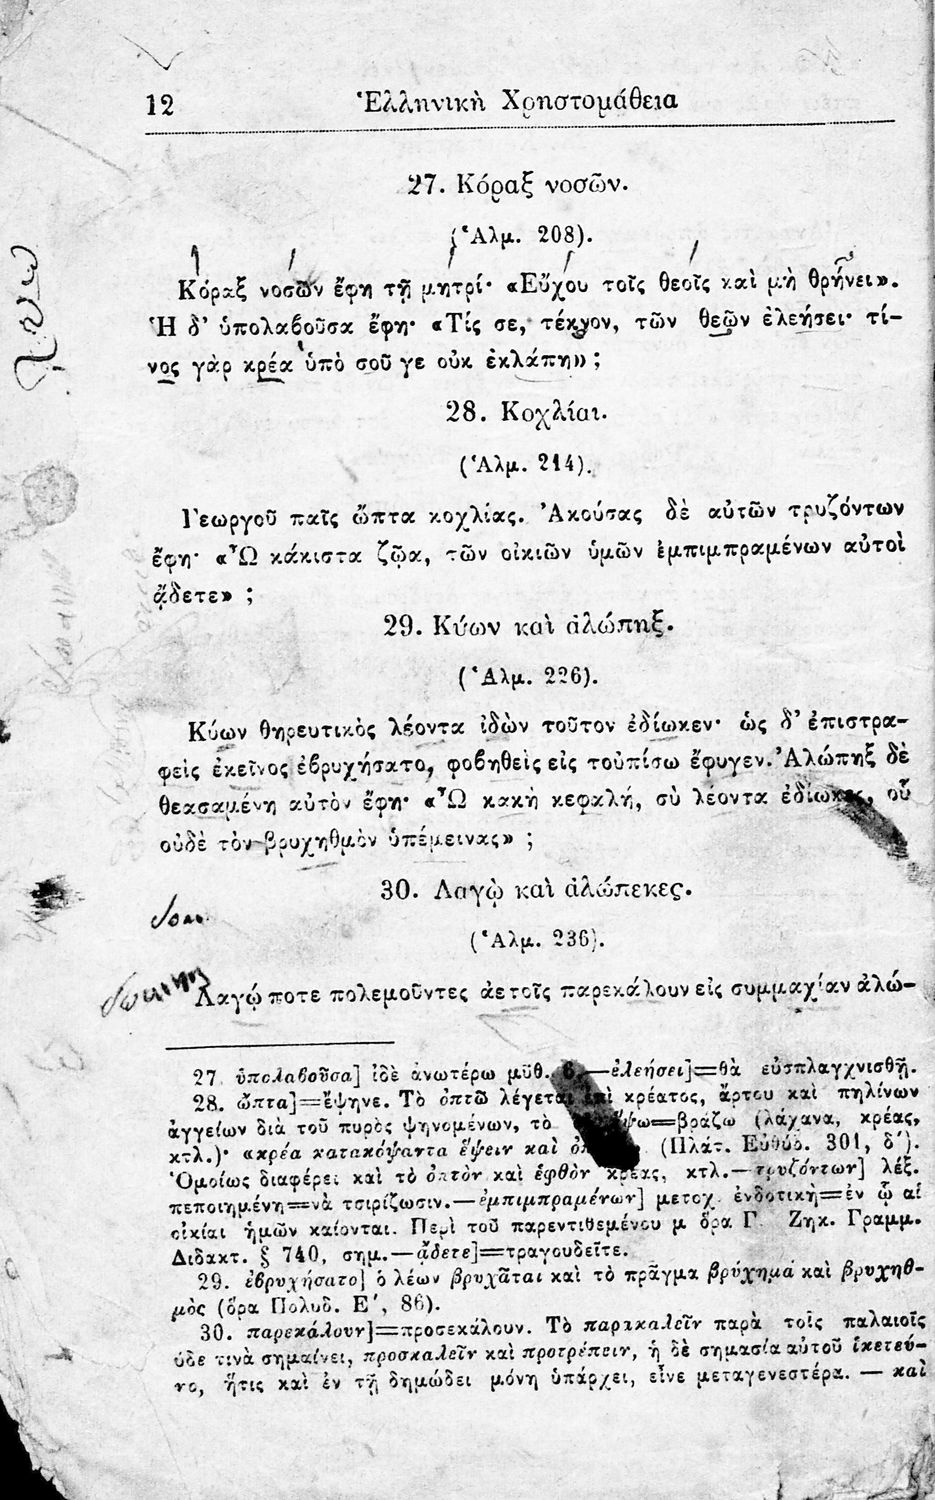 12 Ἑλληνικὴ Χρηστομάθεια
27. Κόραξ νοσῶν.
(Ἁλμ. 208).
Κόραξ νοσῶν ἔφη τῇ μητρί· «Εὔχου τοῖς θεοῖς καὶ μὴ θρήνει».
Ἡ δ’ ὑπολαβοῦσα ἔφη· «Τίς σε, τέκνον, τῶν θεῶν ἐλεήσει· τί-
νος γὰρ κρέα ὑπὸ σοῦ γε οὐκ ἐκλάπη» ;
28. Κοχλίαι.
(Ἁλμ. 214).
Γεωργοῦ παῖς ὤπτα κοχλίας. Ἀκούσας δὲ αὐτῶν τρυζόντων
ἔφη· «Ὦ κάκιστα ζῷα, τῶν οἰκιῶν ὑμῶν ἐμπιμπραμένων αὐτοὶ
ᾄδετε» ;
29. Κύων καὶ ἀλώπηξ.
(Ἁλμ. 226).
Κύων θηρευτικὸς λέοντα ἰδὼν τοῦτον ἐδίωκεν· ὡς δ’ ἐπιστρα-
φεὶς ἐκεῖνος ἐβρυχήσατο, φοβηθεὶς εἰς τοὐπίσω ἔφυγεν. Ἀλώπηξ δὲ
θεασαμένη αὐτὸν ἔφη· «Ὦ κακὴ κεφαλή, σὺ λέοντα ἐδίωκες, οὗ
οὐδὲ τὸν βρυχηθμὸν ὑπέμεινας» ;
30. Λαγῲ καὶ ἀλώπεκες.
(Ἁλμ. 236).
Λαγῴ ποτε πολεμοῦντες ἀετοῖς παρεκάλουν εἰς συμμαχίαν ἀλώ-
27. ὑπολαβοῦσα] ἰδὲ ἀνωτέρω μῦθ. 6 —ἐλεήσει]=θὰ εὐσπλαγχνισθῇ.
28. ὤπτα]=ἔψηνε. Τὸ ὀπτῶ λέγεται ἐπὶ κρέατος, ἄρτου καὶ πηλίνων
ἀγγείων διὰ τοῦ πυρὸς ψηνομένων, τὸ =βράζω (λάχανα, κρέας,
κτλ.)· «κρέα κατακόψαντα ἕψειν καὶ (Πλάτ. Εὐθύδ. 301, δ′).
Ὁμοίως διαφέρει καὶ τὸ ὀπτὸν καὶ ἑφθὸν κρέας, κτλ.—τρυζόντων] λέξ.
πεποιημένη=νὰ τσιρίζωσιν.—ἐμπιμπραμένων] μετοχ. ἐνδοτικὴ=ἐν ᾧ αἱ
οἰκίαι ἡμῶν καίονται. Περὶ τοῦ παρεντιθεμένου μ ὅρα Γ. Ζηκ. Γραμμ.
Διδακτ. § 740, σημ.—ᾄδετε]=τραγουδεῖτε.
29. ἐβρυχήσατο] ὁ λέων βρυχᾶται καὶ τὸ πρᾶγμα βρύχημα καὶ βρυχηθ-
μὸς (ὅρα Πολυδ. Ε′, 86).
30. παρεκάλουν]=προσεκάλουν. Τὸ παρακαλεῖν παρὰ τοῖς παλαιοῖς
ὧδέ τινὰ σημαίνει, προσκαλεῖν καὶ προτρέπειν, ἡ δὲ σημασία αὐτοῦ ἱκετεύ-
νο, ἥτις καὶ ἐν τῇ δημώδει μόνη ὑπάρχει, εἶνε μεταγενεστέρα. — καὶ